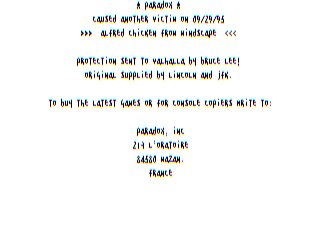 * PARADOX *
CAUSED ANOTHER VICTIM ON 09/29/93
>>> ALFRED CHICKEN FROM MINDSCAPE <<<
PROTECTION SENT TO VALHALLA BY BRUCE LEE!
ORIGINAL SUPPLIED BY LINCOLN AND JFK.
TO BUY THE LATEST GAMES OR FOR CONSOLE COPIERS WRITE TO:
PARADOX, INC
219 L'ORATOIRE
84380 MAZAN.
FRANCE